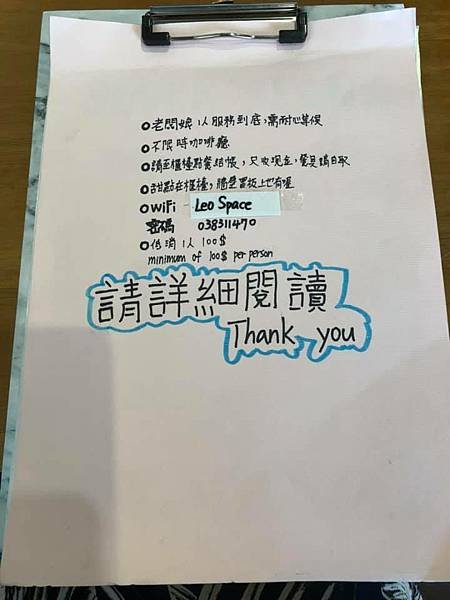 老闆娘1人服務到底,需耐心等候
不限時咖啡廳
請至櫃檯點餐結帳,只收現金,餐具請自取
甜點在櫃檯,牆壁黑板上也有喔
WiFi Leo Space
密碼 038311470
低消1人100$
minimum of 100$ per person
請詳細閱讀
Thank you